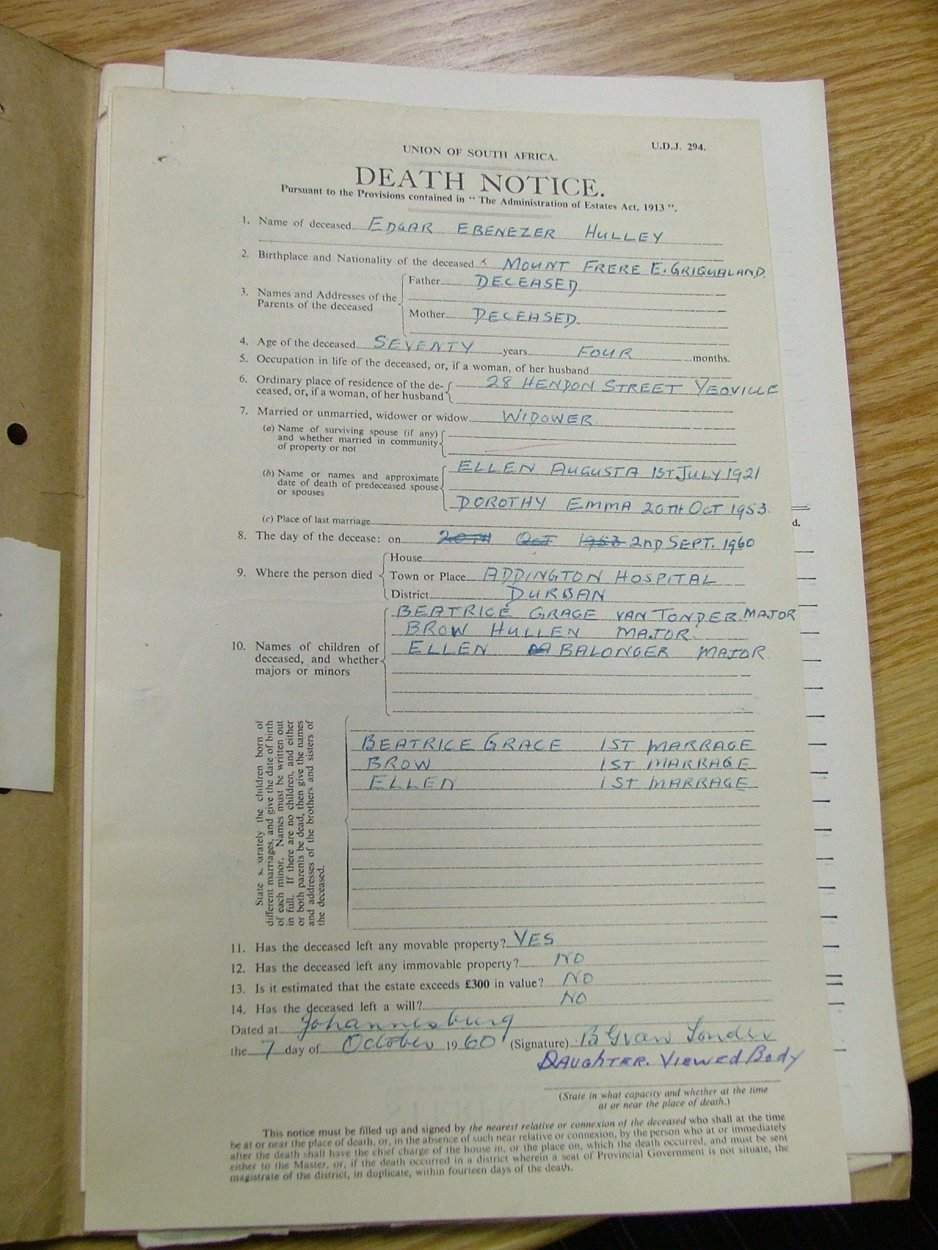 UNION OF SOUTH AFRICA.
U.D.J. 294.
DEATH NOTICE.
Pursuant to the Provisions contained in "The Administration of Estates Act, 1913".
1. Name of deceased EDGAR EBENEZER HULLEY
2. Birthplace and Nationality of the deceased MOUNT FRERE E. GRIQUALAND.
3. Names and Addresses of the Parents of the deceased
Father DECEASED
Mother DECEASED.
4. Age of the deceased SEVENTY years FOUR months.
5. Occupation in life of the deceased, or, if a woman, of her husband
6. Ordinary place of residence of the de-
ceased, or, if a woman, of her husband
28 HENDON STREET YEOVILLE
7. Married or unmarried, widower or widow WIDOWER
(a) Name of surviving spouse (if any)
and whether married in community
of property or not
(b) Name or names and approximate
date of death of predeceased spouse
or spouses
ELLEN AUGUSTA 1ST JULY 1921
DOROTHY EMMA 20TH OCT 1953.
(c) Place of last marriage
d.
8. The day of the decease: on 20TH OCT 1953 2ND SEPT. 1960
9. Where the person died
House
Town or Place ADDINGTON HOSPITAL
District DURBAN
10. Names of children of
deceased, and whether
majors or minors
BEATRICE GRACE VAN TONDER MAJOR
BROW HULLEN MAJOR.
ELLEN BALONGER MAJOR
State separately the children born of
different marriages, and give the date of birth
of each minor. Names must be written out
in full. If there are no children, and either
or both parents be dead, then give the names
and addresses of the brothers and sisters of
the deceased.
BEATRICE GRACE 1ST MARRAGE
BROW 1ST MARRAGE
ELLEN 1ST MARRAGE
11. Has the deceased left any movable property? YES
12. Has the deceased left any immovable property? NO
13. Is it estimated that the estate exceeds £300 in value? NO
14. Has the deceased left a will? NO
Dated at Johannesburg
the 7 day of October 1960 (Signature) B G van Tonder
DAUGHTER. VIEWED BODY
(State in what capacity and whether at the time
at or near the place of death.)
This notice must be filled up and signed by the nearest relative or connexion of the deceased who shall at the time
be at or near the place of death, or, in the absence of such near relative or connexion, by the person who at or immediately
after the death shall have the chief charge of the house in, or the place on, which the death occurred, and must be sent
either to the Master, or, if the death occurred in a district wherein a seat of Provincial Government is not situate, the
magistrate of the district, in duplicate, within fourteen days of the death.